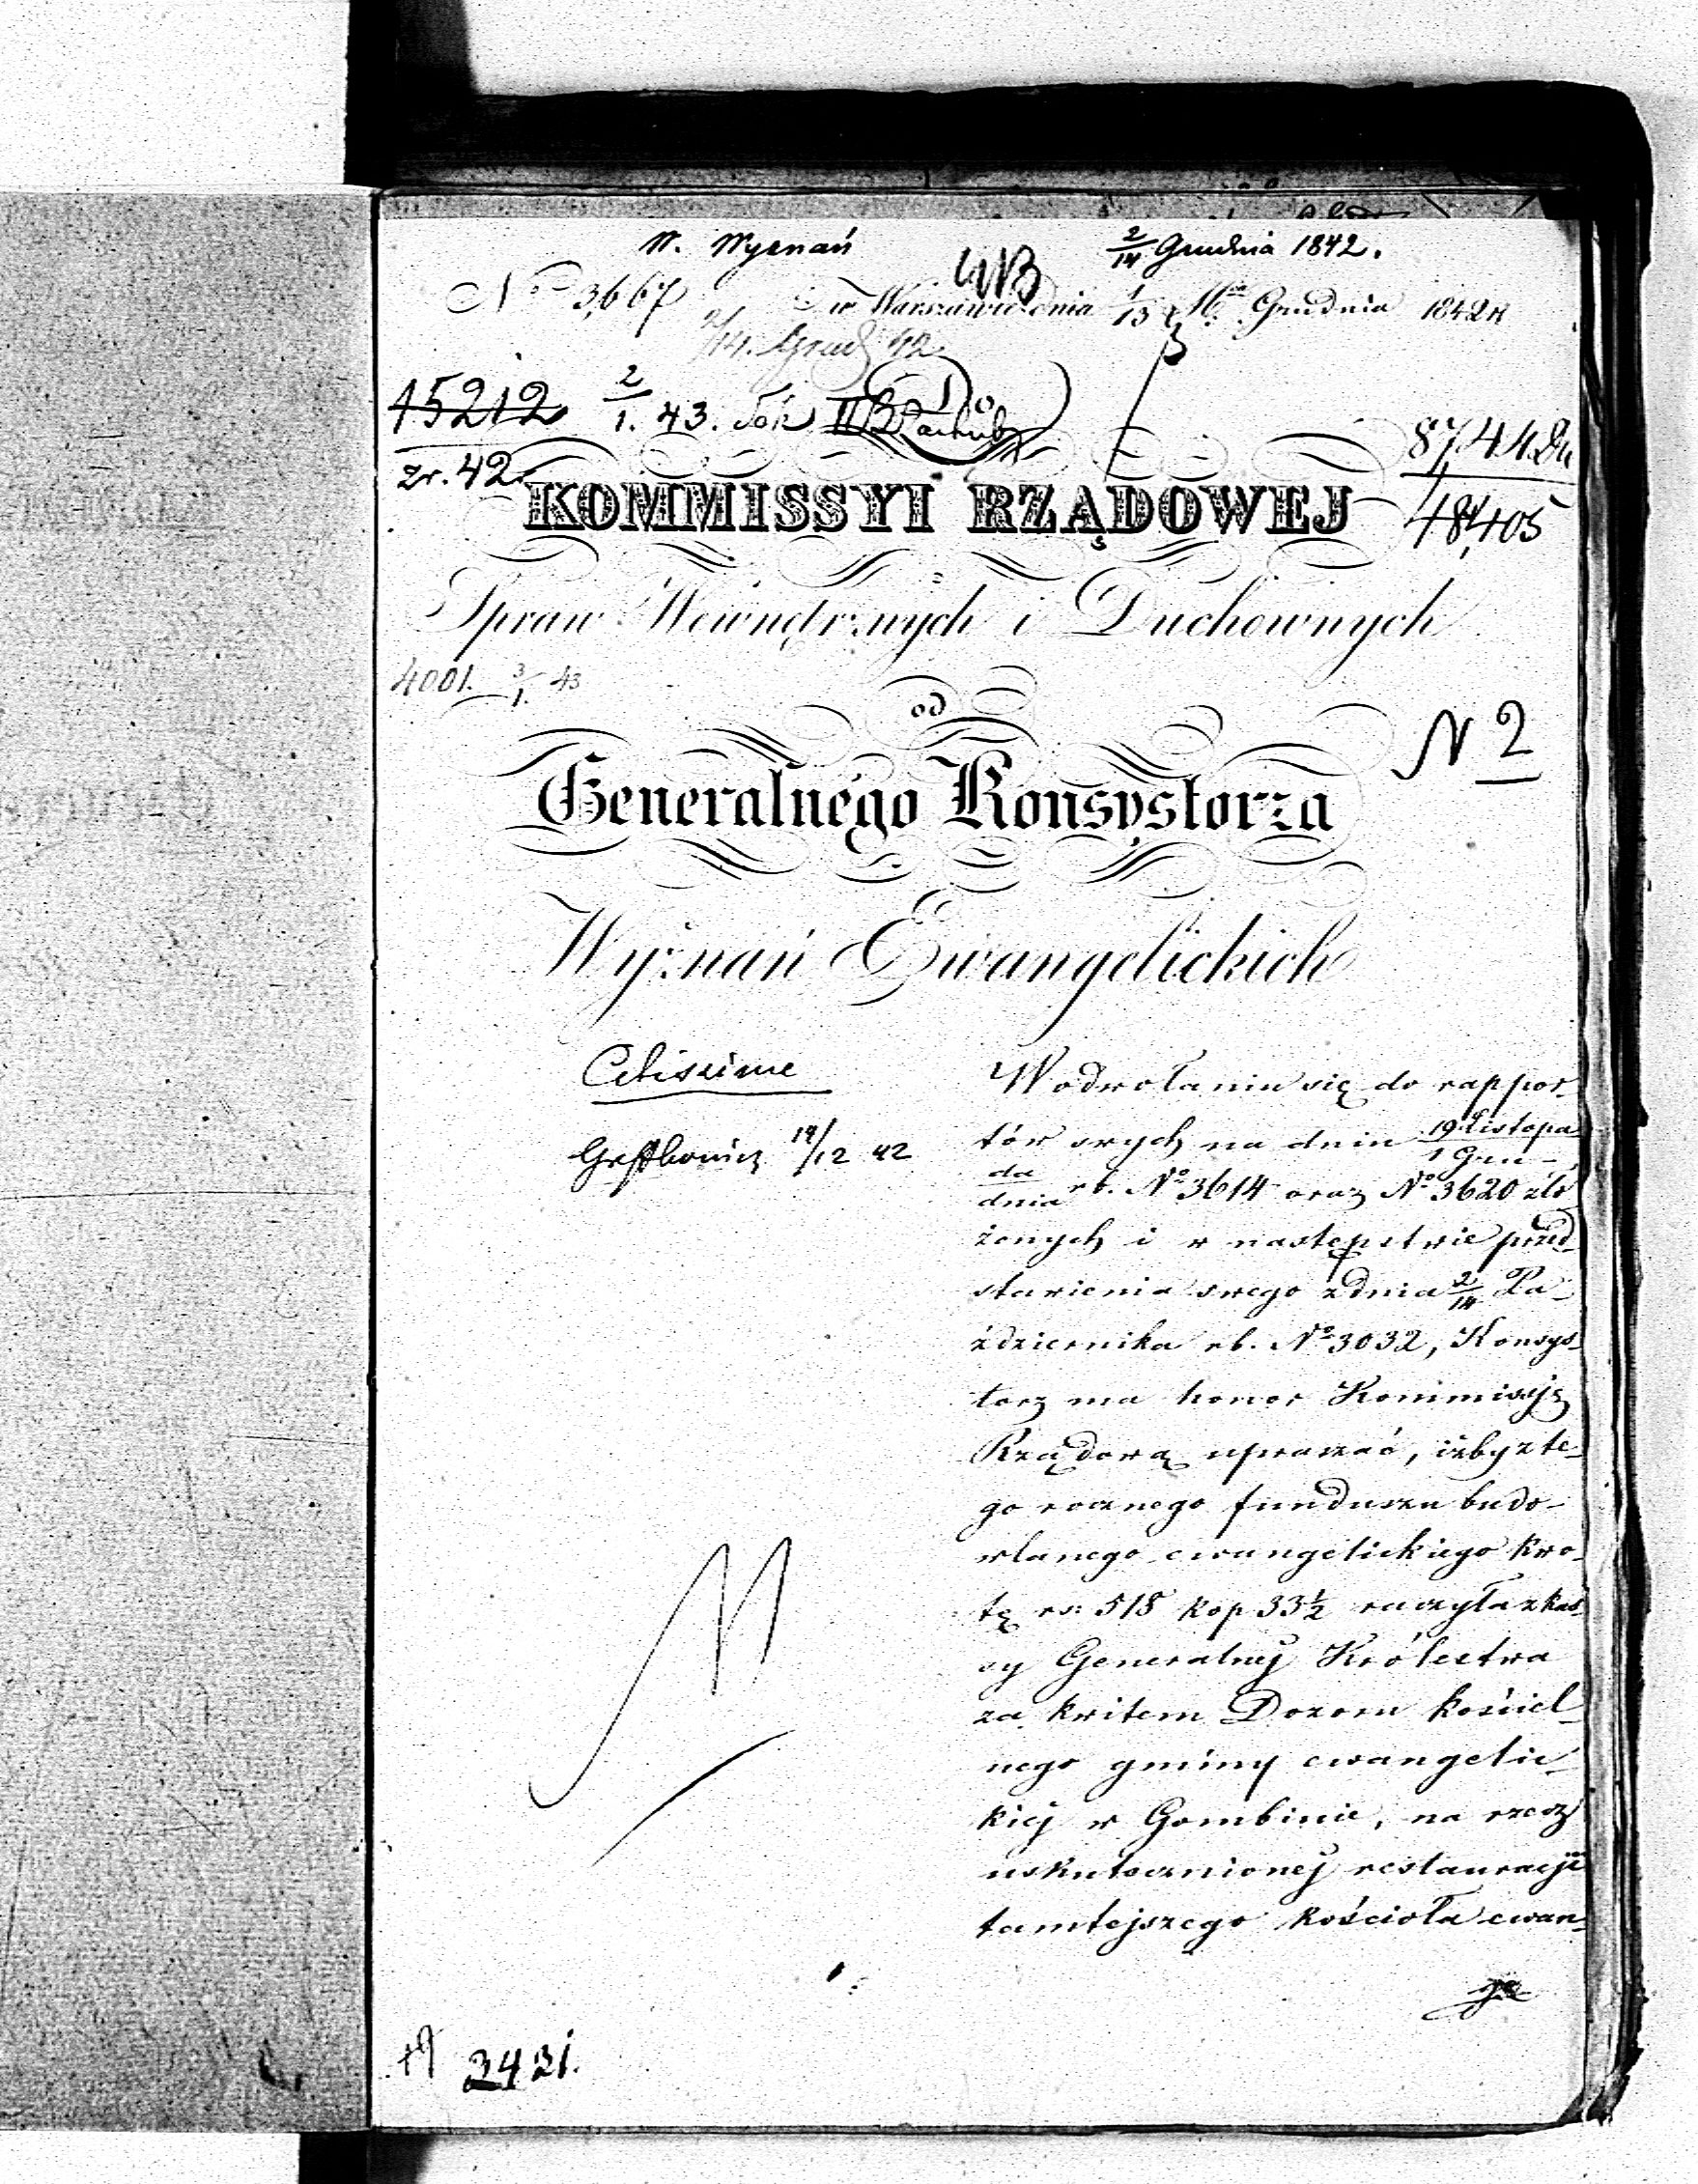 W. Wyznań
2/14 Grudnia 1842.
No 3,667
w Warszawie dnia 1/13 Mca Grudnia 1842 r
2/14. Grud 42
15212 2/1. 43.
zr. 42.
Do
87,44
48,405
KOMMISSYI RZĄDOWEJ
Spraw Wewnętrznych i Duchownych
4001. 3/1. 43
od
N 2
Generalnego Konsystorza
Wyznań Ewangelickich
Citissime
19/12 42
W odwołaniu się do rappor-
tów swych na dniu 19 Listopa-
da / 1 Gru-
dnia rb. No 3614 oraz No 3620 zło
żonych i w następstwie przed-
stawienia swego z dnia 2/14 Pa-
ździernika rb. No 3032, Konsys-
torz ma honor Kommissyę
Rządową upraszać, iżby z te-
go rocznego funduszu budo-
wlanego ewangelickiego kwo-
tę rs: 518 kop 33½ raczyła z kas-
sy Generalnej Królestwa
za kwitem Dozoru kościel-
nego gminy ewangelic-
kiej w Gombinie, na rzecz
uskutecznionej restauracyi
tamtejszego kościoła ewan-
ge
3421.